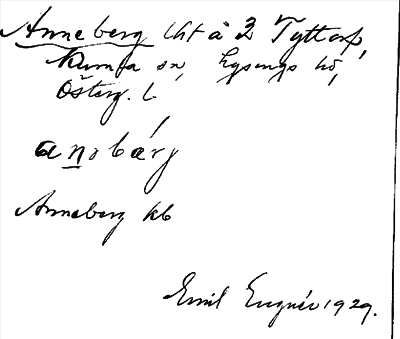 Anneberg lht å 3 Tyttorp,
Rumma sn, Lysings hd,
Österg. l
anobärj
Anneberg kb
Emil Eugnér 1929.